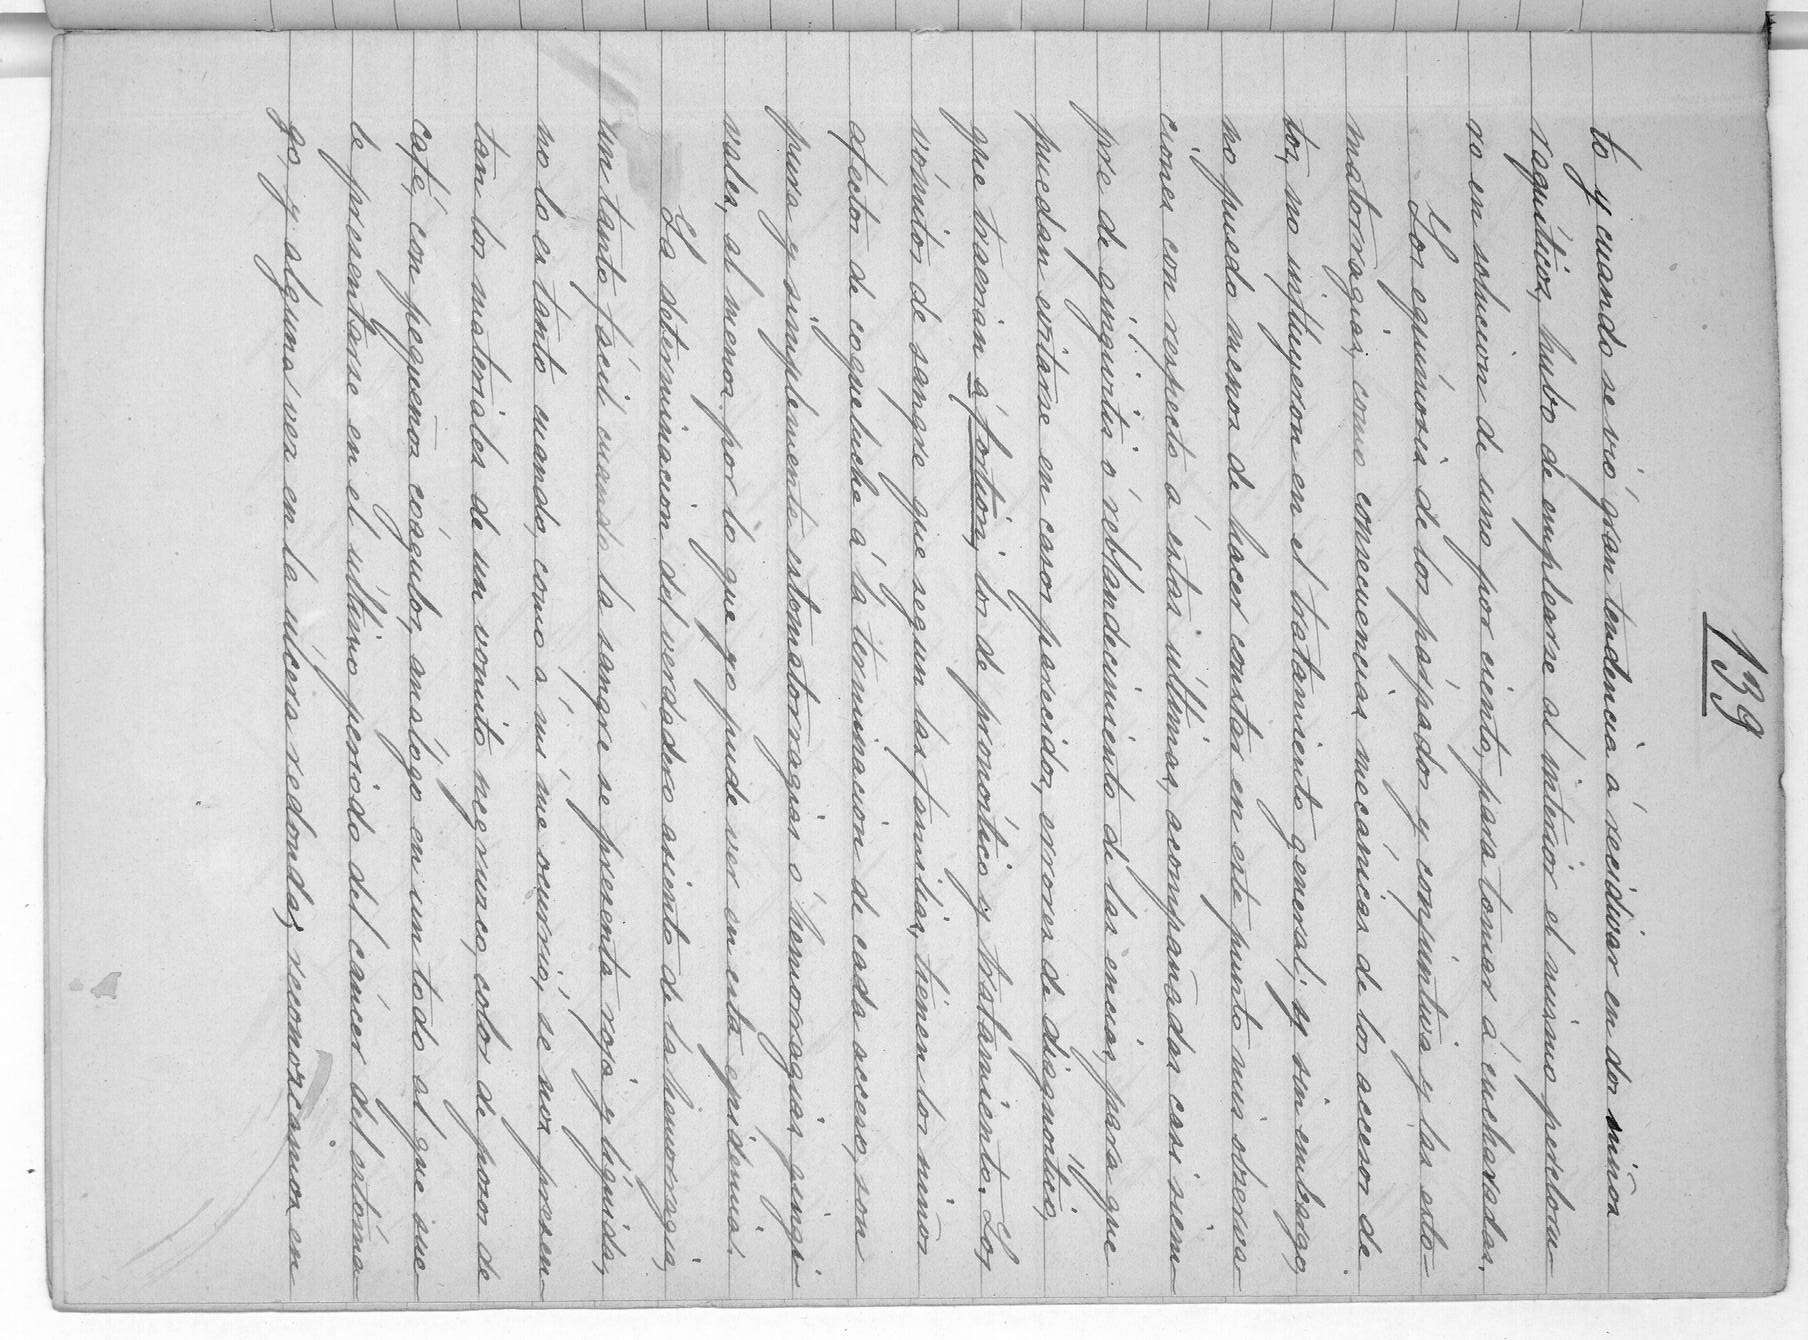 139
to y cuando se vió gran tendencia á recidivar en dos niños
raquíticos, hubo de emplearse al interior el mismo percloru-
ro en solucion de uno por ciento, para tomar á cucharadas.
Los equimosis de los párpados y conjuntiva y las esto-
matorragias, como consecuencias mecánicas de los accesos de
tos, no influyeron en el tratamiento general; y sin embargo,
no puedo menos de hacer constar en este punto mis observa-
ciones con respecto á estas últimas, acompañadas casi siem-
pre de gingivitis ó reblandecimiento de las encias, para que
puedan evitarse en casos parecidos, errores de diagnóstico,
que traerian á fortiori, los de pronóstico y tratamiento. Los
vómitos de sangre que segun las familias, tienen los niños
afectos de coqueluche á la terminacion de cada acceso, son
pura y simplemente estomatorragias ó hemorragias gingi-
vales, al menos por lo que yo pude ver en esta epidemia.
La determinacion del verdadero asiento de la hemorragia,
un tanto fácil cuando la sangre se presenta roja y líquida,
no lo es tanto cuando, como á mí me ocurrió, se nos presen-
tan los materiales de un vómito negruzco, color de posos de
café, con pequeños coágulos, análogo en un todo al que sue-
le presentarse en el último periodo del cáncer del estóma-
go, y alguna vez en la úlcera redonda; reconozcamos en